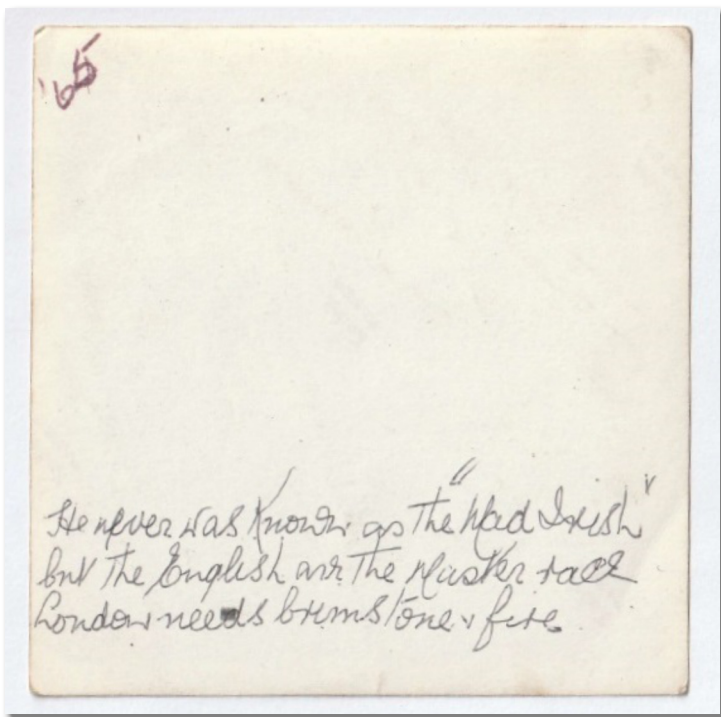 '65
He never was Known as the "Mad Irish"
but the English are the Master race
London needs brimstone & fire